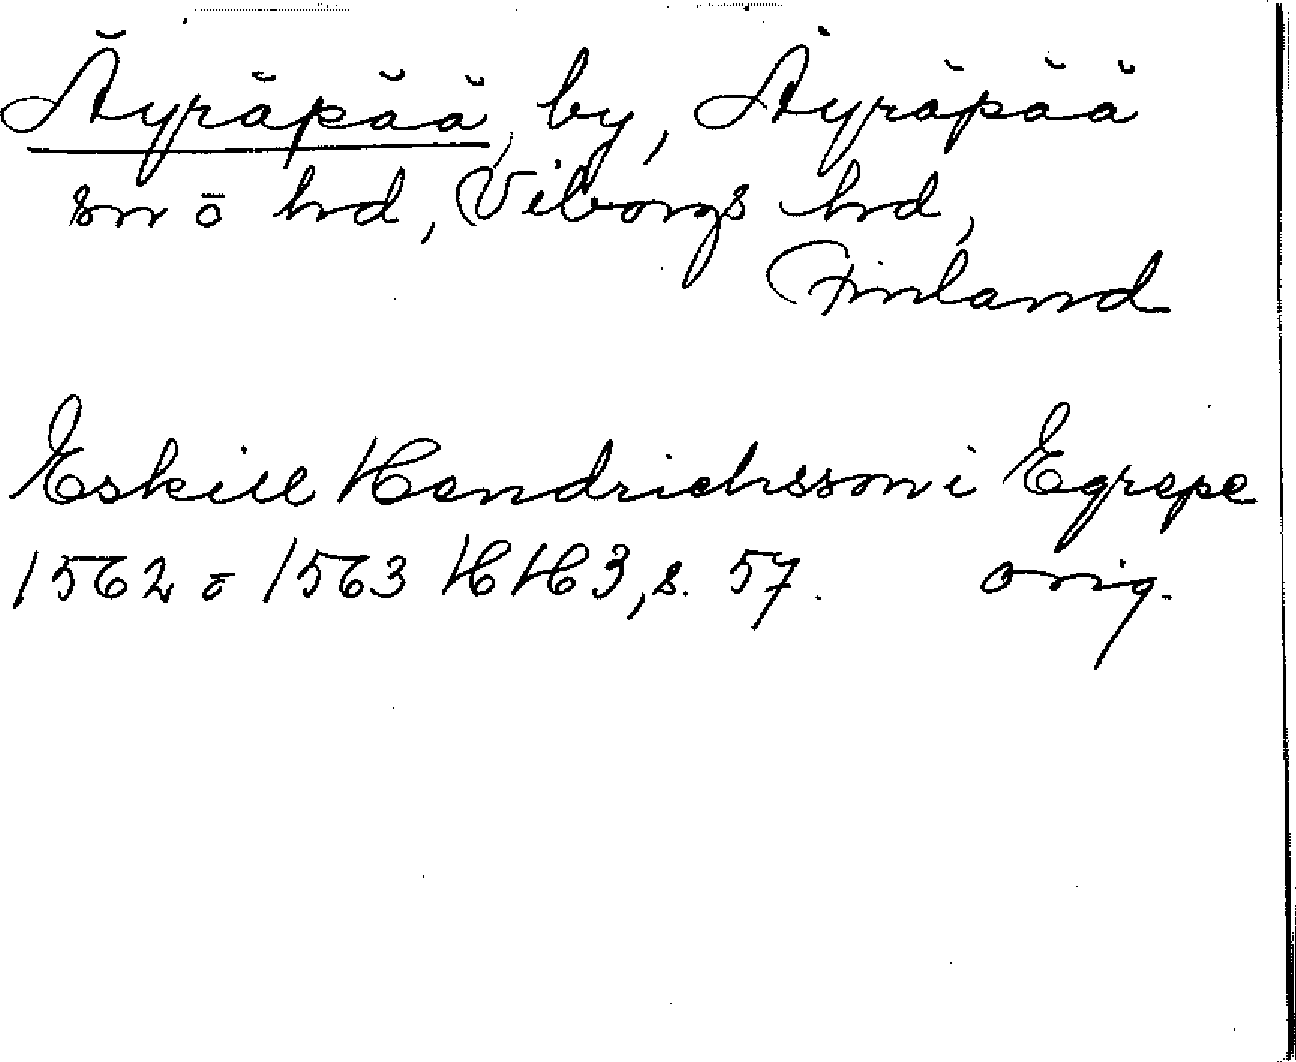 Äyräpää, by, Äyräpää
sn o hd, Viborgs hd,
Finland
Eskill Hendrichsson i Egrepe
1562 o 1563 HH3, s. 57. orig.